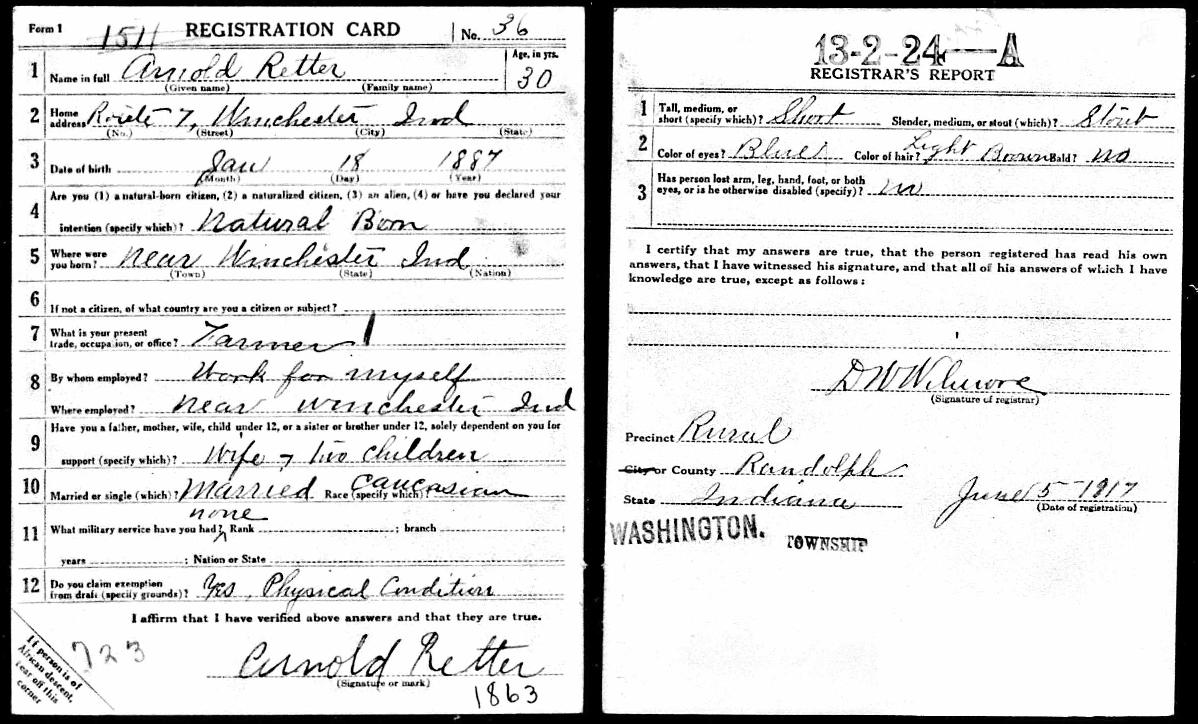 Form 1 1511 REGISTRATION CARD No. 36
1 Name in full Arnold Retter Age, in yrs. 30
(Given name) (Family name)
2 Home address Route 7, Winchester Ind
(No.) (Street) (City) (State)
3 Date of birth Jan 18 1887
(Month) (Day) (Year)
Are you (1) a natural-born citizen, (2) a naturalized citizen, (3) an alien, (4) or have you declared your
4 intention (specify which)? Natural Born
5 Where were you born? Near Winchester Ind
(Town) (State) (Nation)
6 If not a citizen, of what country are you a citizen or subject?
7 What is your present trade, occupation, or office? Farmer
8 By whom employed? Work for myself
Where employed? near Winchester Ind
9 Have you a father, mother, wife, child under 12, or a sister or brother under 12, solely dependent on you for
support (specify which)? Wife & two children
10 Married or single (which)? Married Race (specify which)? Caucasian
none
11 What military service have you had? Rank ; branch ;
years ; Nation or State
12 Do you claim exemption from draft (specify grounds)? Yes, Physical Condition
I affirm that I have verified above answers and that they are true.
If person is of
African descent,
tear off this
corner
723
Arnold Retter
(Signature or mark)
1863
13-2-24-A
REGISTRAR'S REPORT
1 Tall, medium, or short (specify which)? Short Slender, medium, or stout (which)? Stout
2 Color of eyes? Blue Color of hair? Light Brown Bald? no
3 Has person lost arm, leg, hand, foot, or both eyes, or is he otherwise disabled (specify)? no
I certify that my answers are true, that the person registered has read his own
answers, that I have witnessed his signature, and that all of his answers of which I have
knowledge are true, except as follows:
D W Wilmore
(Signature of registrar)
Precinct Rural
City or County Randolph
State Indiana June 5-1917
(Date of registration)
WASHINGTON. TOWNSHIP